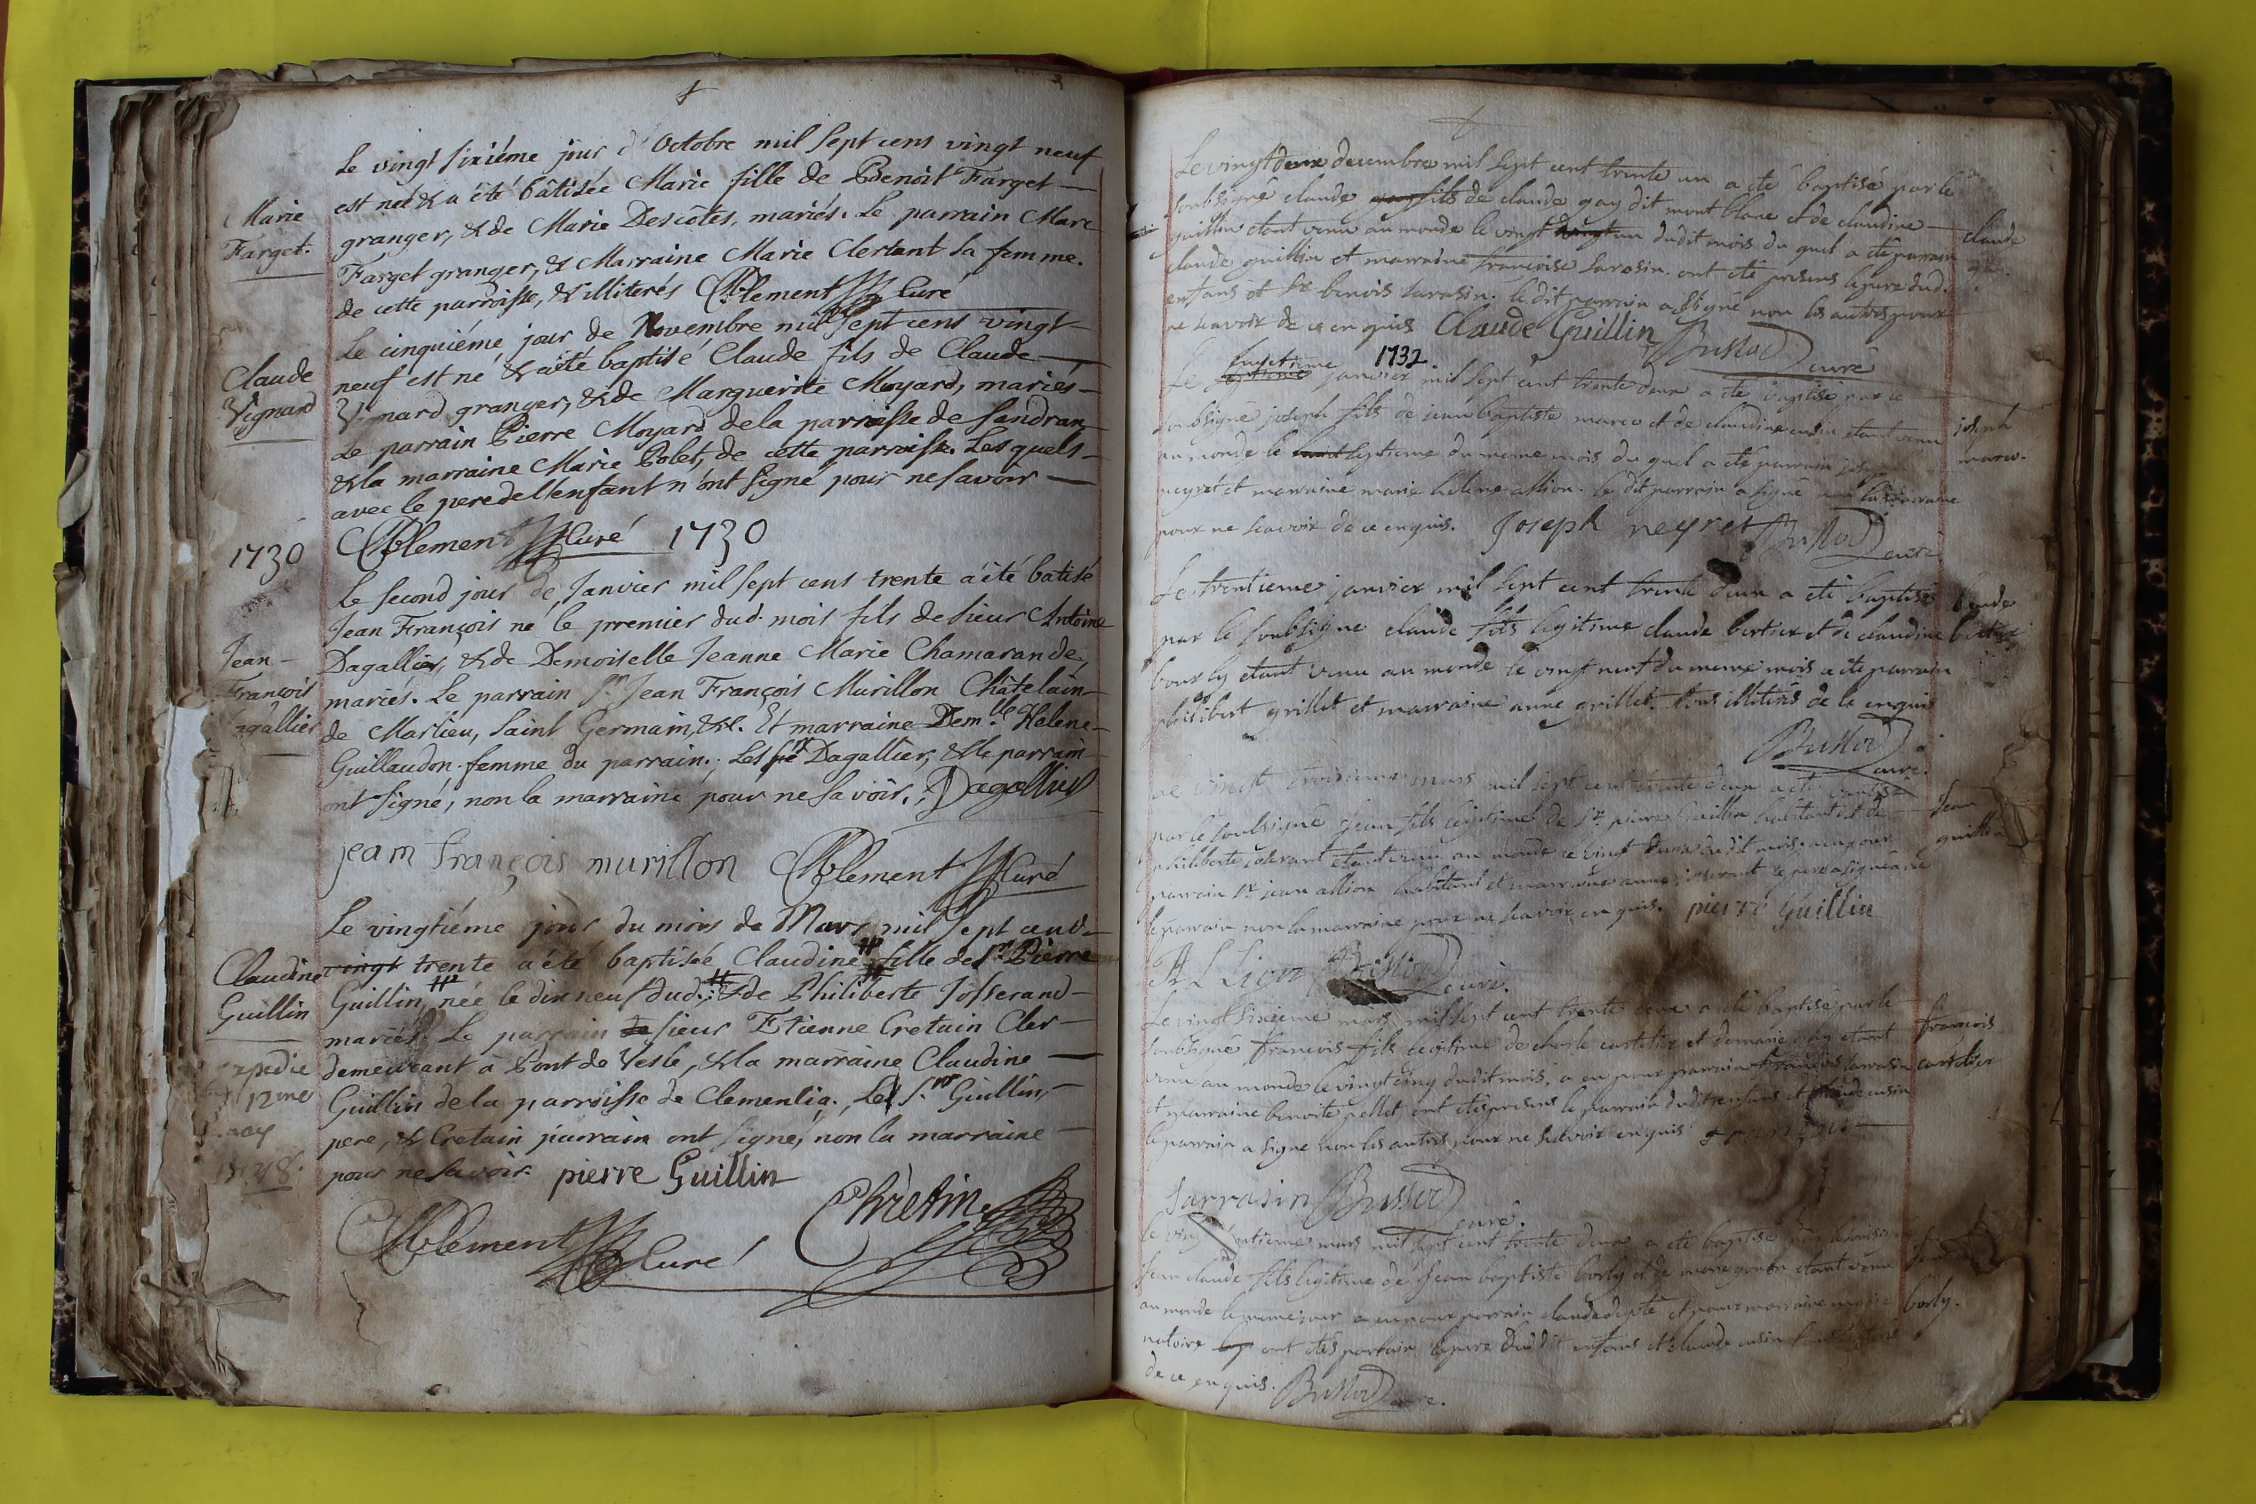 Le vingt sixiéme jour d'Octobre mil sept cens vingt neuf
est née & a été bâtisée Marie fille de Benoit Farget
granger, & de Marie Descôtes, mariés. Le parrain Marc
Farget granger, & Marraine Marie Clertant sa femme.
de cette parroisse, & illiterés Clement Curé
Marie
Farget.
Le cinquiéme jour de Novembre mil sept cens vingt
neuf est né & a été baptisé Claude fils de Claude
Vignard granger, & de Marguerite Moyard, mariés
Le parrain Pierre Moyard de la parroisse de Sandran
& la marraine Marie Polet, de cette parroisse. Les quels
avec le pere de l'enfant n'ont signé pour ne savoir
Clement Curé 1730
Claude
Vignard
1730
Le second jour de Janvier mil sept cens trente a été batisé
Jean François né le premier dud. mois fils de sieur Antoine
Dagallier, & de Demoiselle Jeanne Marie Chamarande,
mariés. Le parrain Sr. Jean François Murillon Châtelain
de Marlieu, Saint Germain, &c. Et marraine Demlle Helene
Guillaudon femme du parrain. Les Dagallier, & le parrain
ont signé, non la marraine pour ne savoir. Dagallier
jean françois murillon Clement Curé
Jean
François
agallier
Le vingtiéme jour du mois de Mars mil sept cens
vingt trente a été baptisée Claudine fille de Sr. Pierre
Guillin, née le dix neuf dud. & de Philiberte Josserand
mariés. Le parrain sieur Etienne Cretain Cler
demeurant à Pont de Vesle, & la marraine Claudine
Guillin de la parroisse de Clemenlia. Les Srs Guillin,
pere, & Cretain parrain ont signé, non la marraine
pour ne savoir. pierre Guillin
Clement Curé Chrétin
Claudine
Guillin
Le vingt deux decembre mil sept cent trente un a été baptisé par le
soubsigné claude fils de claude gay dit mont blanc et de claudine
guillin etant venu au monde le vingt un dudit mois du quel a été parrain
claude guillin et marraine françoise sarasin. ont été presens le pere dud.
enfans et Sr benois sarasin. le dit parrain a signé non les autres pour
ne scavoir de ce enquis Claude Guillin Bussod curé
claude
gay.
1732.
Le huitieme janvier mil sept cent trente deux a été baptisé par le
soubsigné joseph fils de jean baptiste marco et de claudine cusin etant venu
au monde le septieme du meme mois du quel a été parrain joseph
neyret et marraine marie helene allion. le dit parrain a signé non la marraine
pour ne scavoir de ce enquis. Joseph neyret Bussod curé
joseph
marco.
Le trentieme janvier mil sept cent trente deux a été baptisé
par le soubsigné claude fils legitime claude bertier et de claudine
bourly etant venu au monde le vingt neuf du meme mois a été parrain
philibert grillet et marraine anne grillet. tous illiterés de ce enquis
Bussod curé.
claude
bertier
Le vingt troisieme mars mil sept cent trente deux a été baptisé
par le soubsigné jean fils legitime de Sr. pierre guillin habitant et de
philiberte joserant etant venu au monde le vingt deux dudit mois a eu pour
parrain Sr. jean allion habitant et marraine anne joserant le pere a signé avec
le parrain non la marraine pour ne scavoir enquis. pierre Guillin
ALLion Bussod curé.
jean
guillin
Le vingt sixieme mars mil sept cent trente deux a été baptisé par le
soubsigné françois fils legitime de charle curtelier et de marie gay etant
venu au monde le vingt cinq dudit mois. a eu pour parrain françois sarrasin
et marraine benoite pellet ont été presens le parrain dudit enfans et claude cusin
le parrain a signé non les autres pour ne scavoir enquis françoi
sarrasin Bussod curé.
francois
curtelier
mars mil sept cent trente deux a été baptisé
jean claude fils legitime de jean baptiste borly et de marie etant venu
au monde le meme jour a eu pour parrain claude et pour marraine marie
ont été le pere dudit enfans et claude cusin
de ce enquis. Bussod curé.
borly.